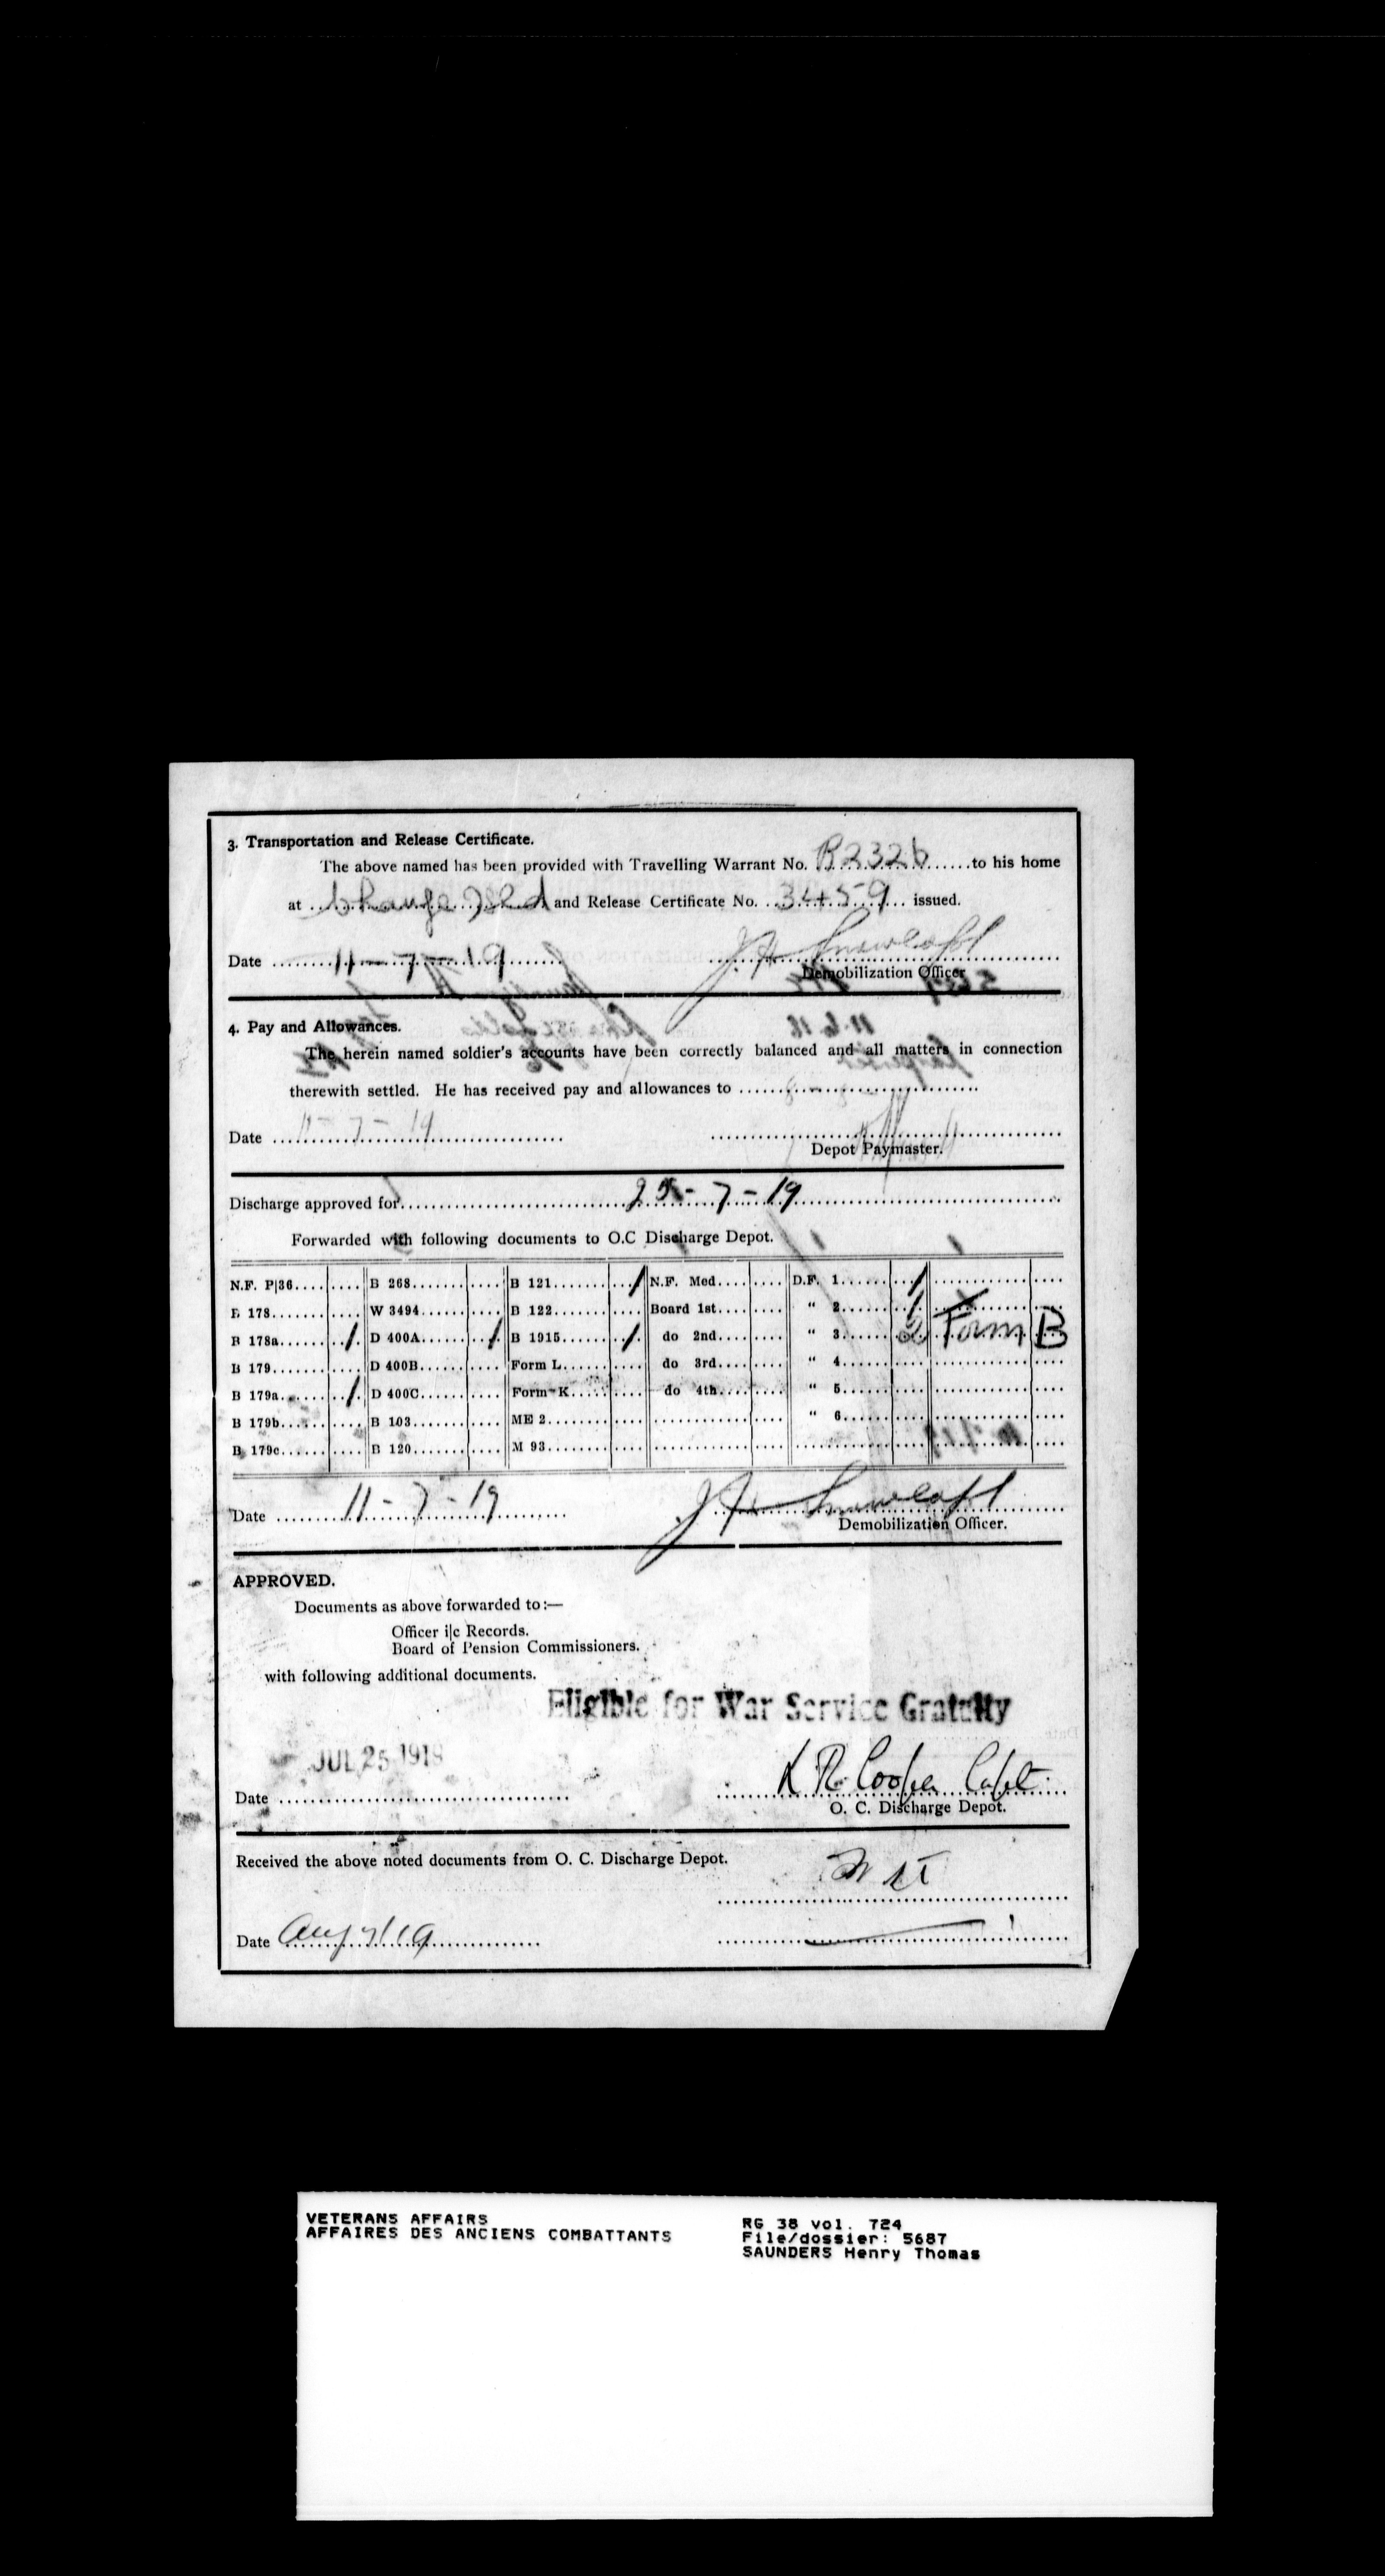 3. Transportation and Release Certificate.
The above named has been provided with Travelling Warrant No. R2326 to his home
at Change Isld and Release Certificate No. 3459 issued.
Date 11-7-19
Demobilization Officer
4. Pay and Allowances.
The herein named soldier's accounts have been correctly balanced and all matters in connection
therewith settled. He has received pay and allowances to
Date 11-7-19
Depot Paymaster.
Discharge approved for 25-7-19
Forwarded with following documents to O.C Discharge Depot.
N.F. P|36 B 268 B 121 / N.F. Med. D.F. 1 /
B 178 W 3494 B 122 Board 1st " 2 /
B 178a / D 400A / B 1915 / do 2nd " 3 2 Form B
B 179 D 400B Form L do 3rd " 4
B 179a / D 400C Form K do 4th " 5
B 179b B 103 ME 2 " 6
B 179c B 120 M 93
Date 11-7-19
Demobilization Officer.
APPROVED.
Documents as above forwarded to:—
Officer i|c Records.
Board of Pension Commissioners.
with following additional documents.
Eligible for War Service Gratuity
JUL 25 1919
Date
K R Cooper Capt.
O. C. Discharge Depot.
Received the above noted documents from O. C. Discharge Depot.
Date Aug 19
VETERANS AFFAIRS
AFFAIRES DES ANCIENS COMBATTANTS
RG 38 vol. 724
File/dossier: 5687
SAUNDERS Henry Thomas